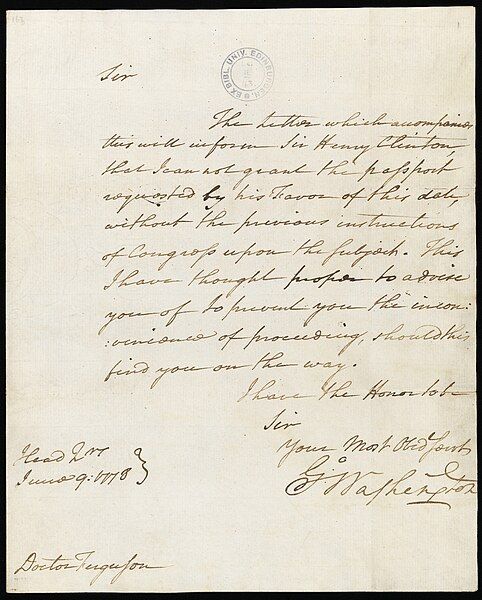 163
EX BIBL. UNIV. EDINBURGEN.
Sir
The Letter which accompanies
this will inform Sir Henry Clinton,
that I can not grant the passport
requested by his Favor of this date,
without the previous instructions
of Congress upon the subject. This
I have thought proper to advise
you of to prevent you the incon:
:venience of proceeding, should this
find you on the way.
I have the Honor to be
Sir
Your Most Obed Servt
Go Washington
Head Qrs
June 9: 1778
Doctor Ferguson